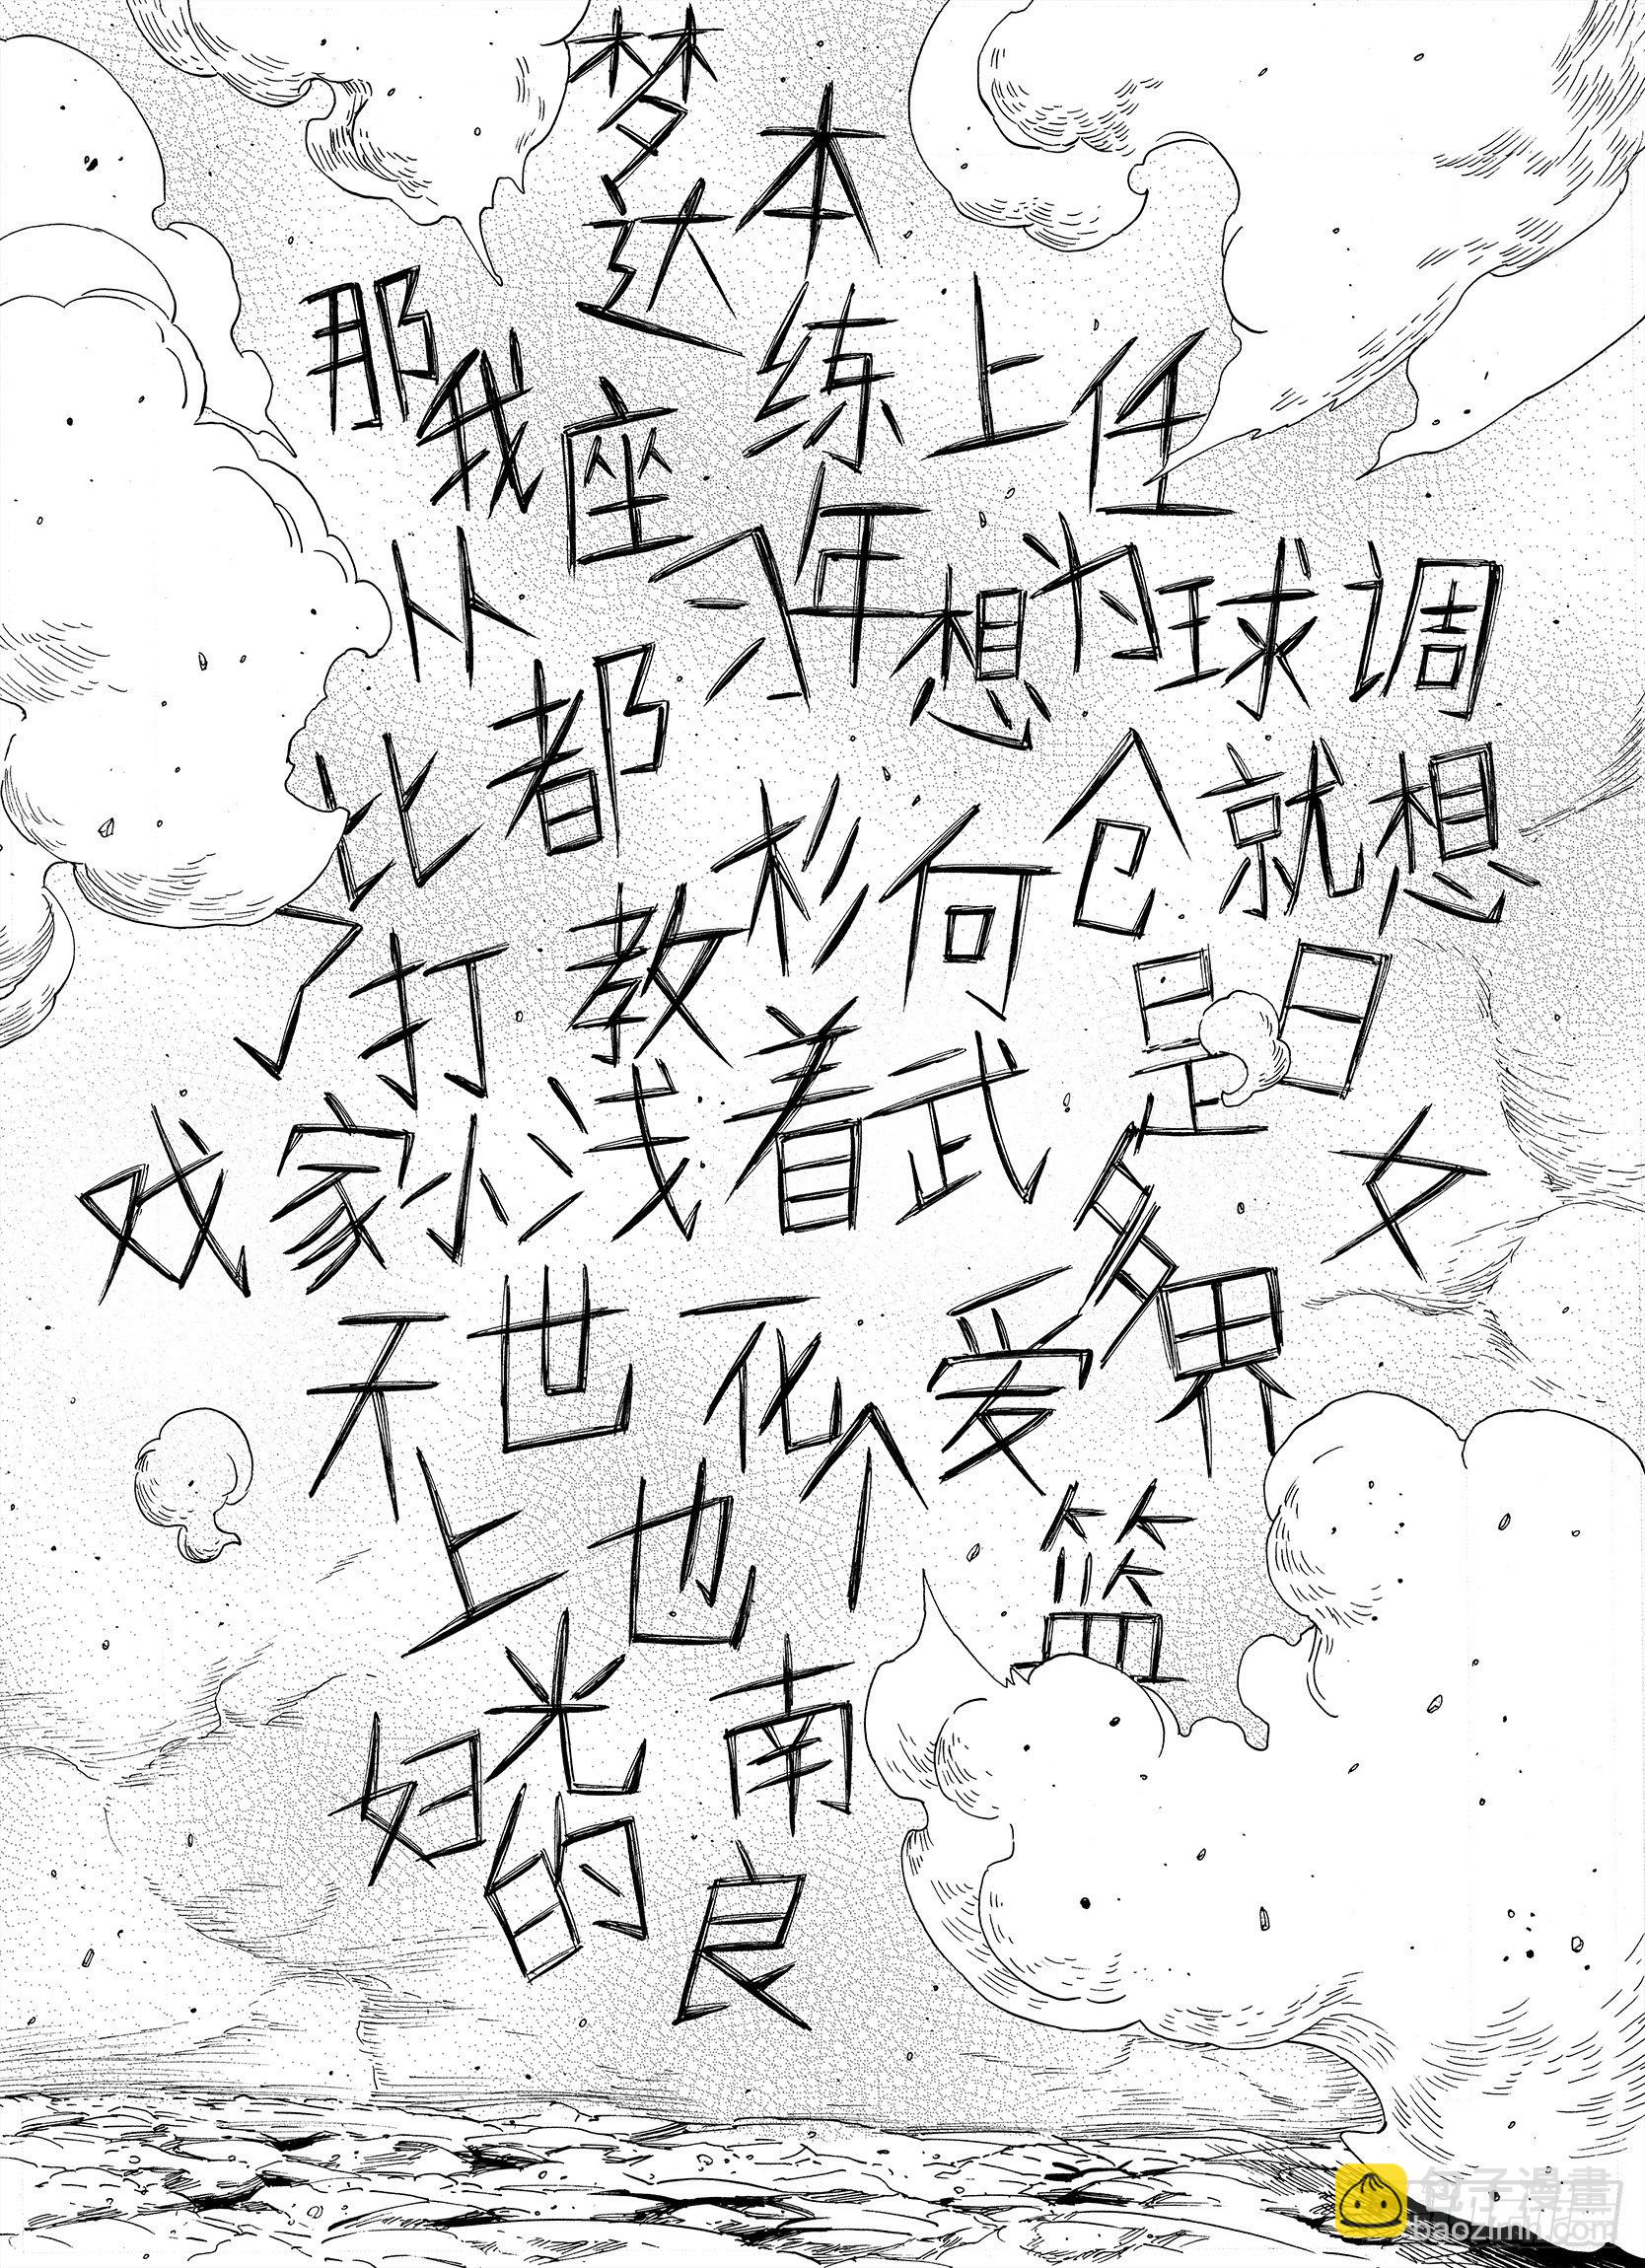 梦 本
达
那 我 座 练 上 任
从 习 年 想 为 球 调
比 都 杉 何 仓 就 想
了 打 教 是 日
戏 家 小 浅 着 武 多 女
天 世 一 化 爱 界
上 也 个 篮
妇 光 南
的 良
包子漫畫
baozimh.com